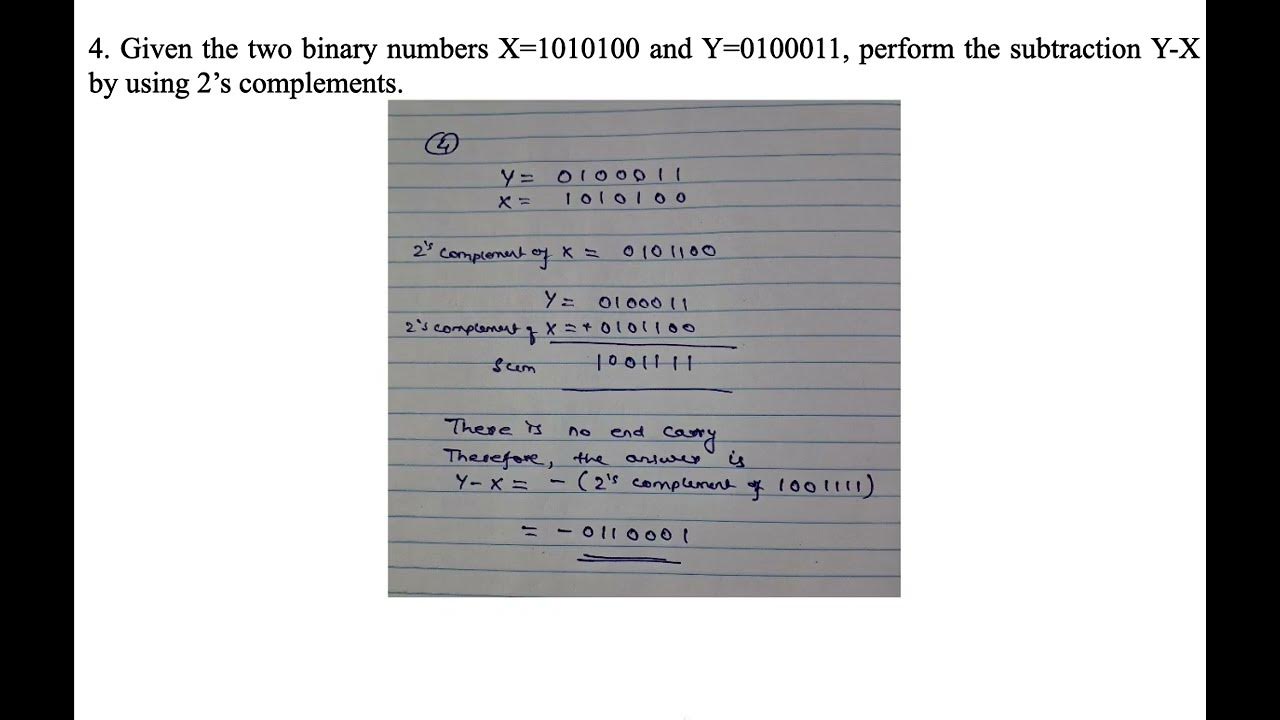 4. Given the two binary numbers X=1010100 and Y=0100011, perform the subtraction Y-X
by using 2’s complements.
4
Y = 0100011
X = 1010100
2's complement of X = 0101100
Y = 0100011
2's complement of X = + 0101100
Sum 1001111
There is no end carry
Therefore, the answer is
Y - X = - (2's complement of 1001111)
= - 0110001